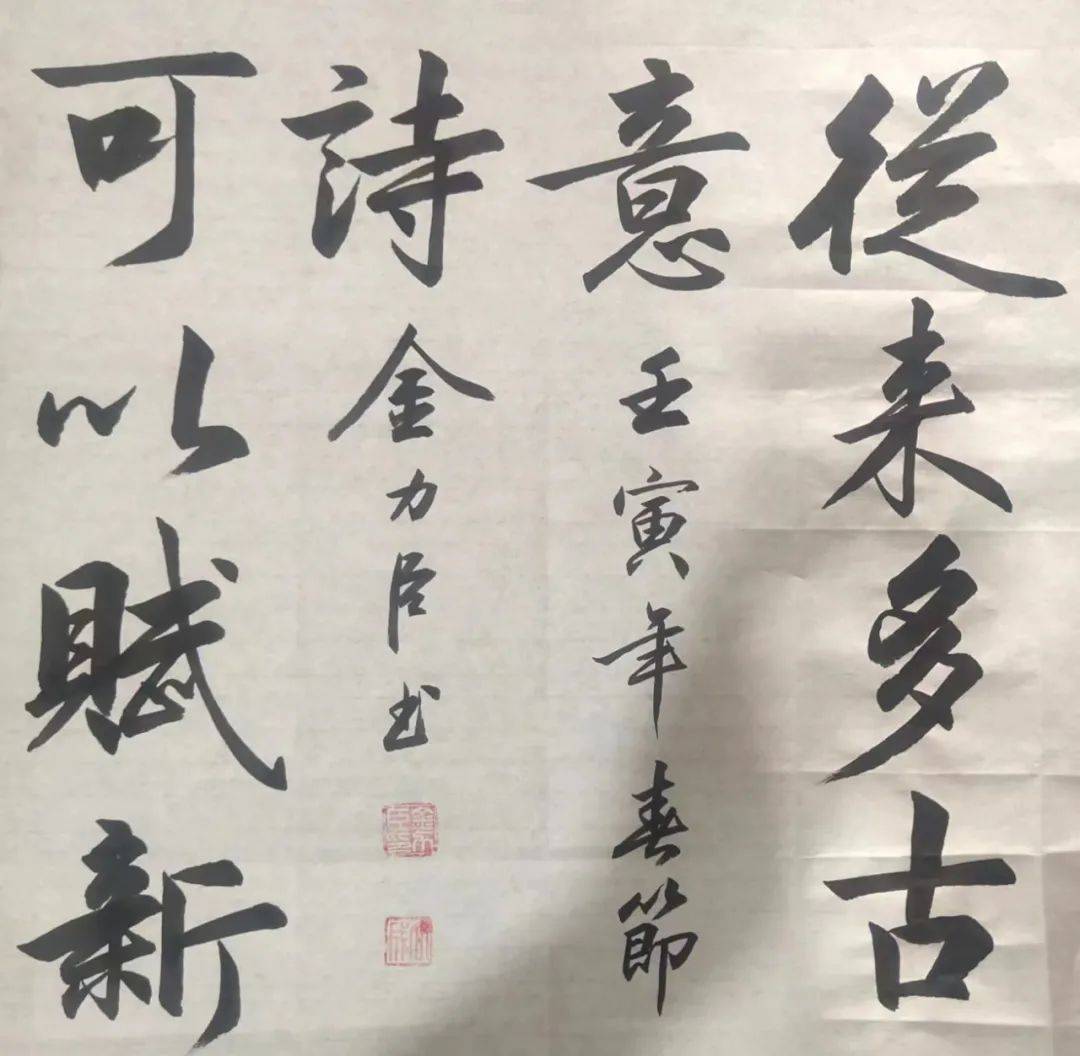 從来多古
意 壬寅年春節
可以賦新
詩 金力臣书